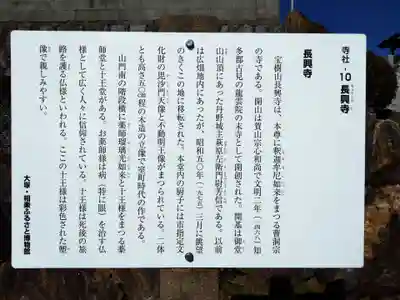 寺社・10 長興寺
ちょうこうじ
長興寺
宝樹山長興寺は、本尊に釈迦牟尼如来をまつる曹洞宗
の寺である。開山は賀山宗心和尚で文明二年(一四七〇)知
多郡古見の龍雲院の末寺として開創された。開基は御堂
山山頂にあった丹野城主萩原左衛門尉芳信である。以前
は広畑地内にあったが、昭和五〇年(一九七五)三月に眺望
のきくこの地に移転された。本堂内の厨子には市指定文
化財の毘沙門天像と不動明王像がまつられている。二体
とも高さ五〇㎝程の木造の立像で室町時代の作である。
山門南の階段横に薬師瑠璃光如来と十王様をまつる薬
師堂と十王堂がある。お薬師様は病(特に眼)を治す仏
様として広く人々に信仰されている。十王様は死後の旅
路を護る仏様といわれる。ここの十王様は彩色された塑
像で親しみやすい。
大塚・相楽ふるさと博物館